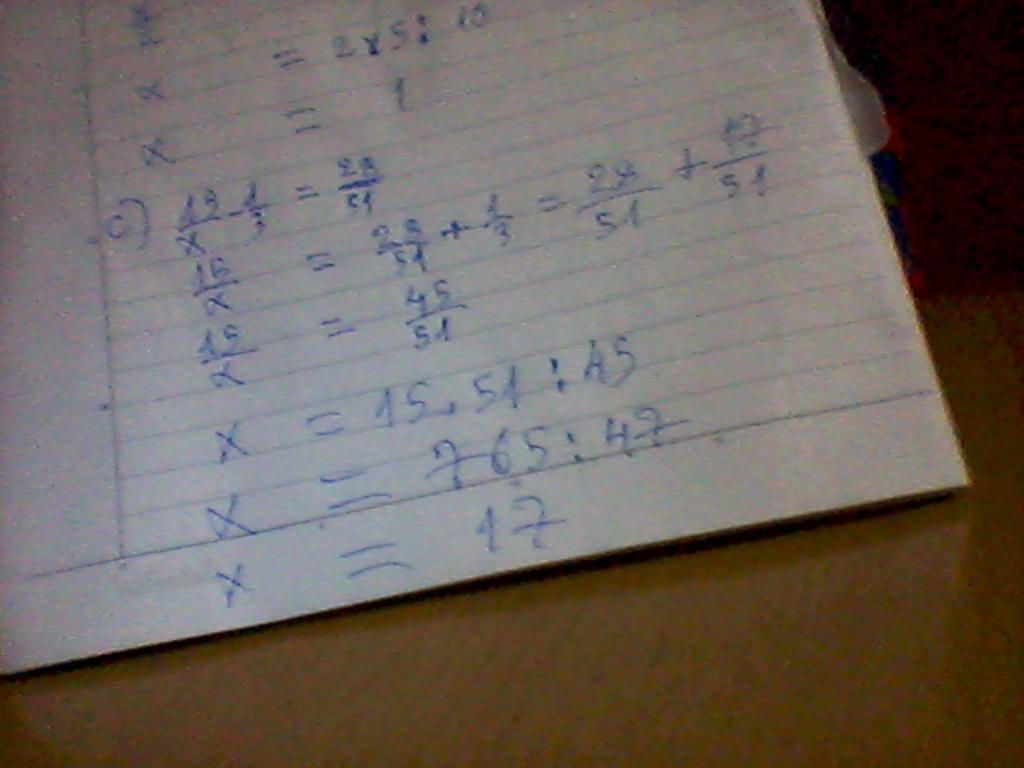 x = 2x5: 10
x = 1
c) 15/x - 1/3 = 28/51
15/x = 28/51 + 1/3 = 28/51 + 17/51
15/x = 45/51
x = 15.51:45
x = 765:47
x = 17